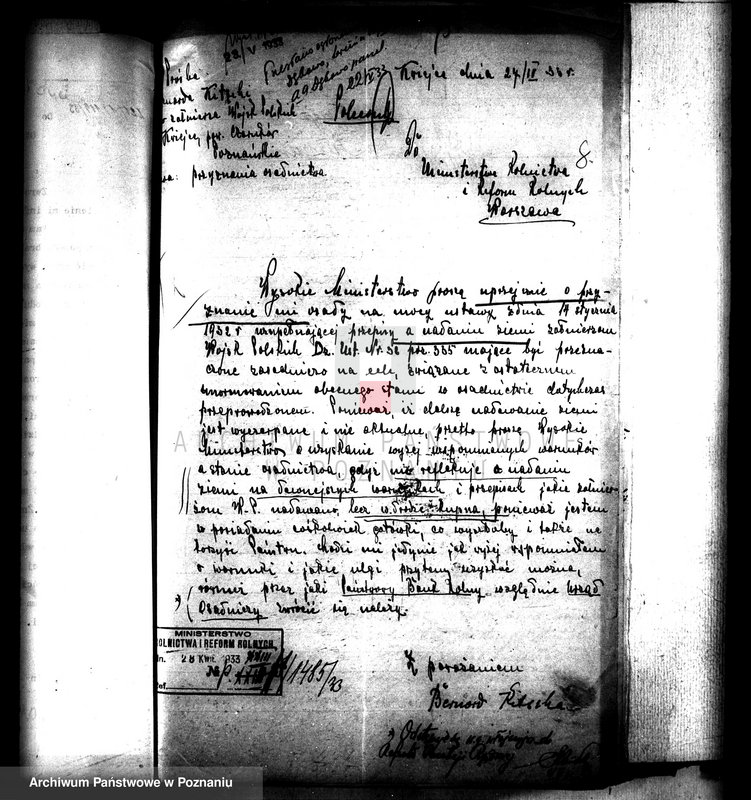 22/V 1933
22/V 33
Krieje dnia 24/IV 33 r.
Prośba
Kitzki
żołnierza Wojsk Polskich
Krieje, pow. Czarnków
Poznańskie
przyznania osadnictwa.
Polecony
Do
8.
Ministerstwa Rolnictwa
i Reform Rolnych
Warszawa
Wysokie Ministerstwo proszę uprzejmie o przy-
znanie mi osady na mocy ustawy z dnia 14 stycznia
1932 r uzupełniającej przepisy o nadaniu ziemi żołnierzom
Wojsk Polskich Dz. Ust. Nr. 36 poz. 365 mające być przezna-
czone zasadniczo na cele, związane z ostatecznem
unormowaniem obecnego stanu w osadnictwie dotychczas
przeprowadzonem. Ponieważ, iż dalsze nadawanie ziemi
jest wyczerpane i nie aktualne, przeto proszę Wysokie
Ministerstwo o uzyskanie wyżej wspomnianych warunków
o stanie osadnictwa, gdyż nie reflektuję o nadaniu
ziemi na dawniejszych warunkach i przepisach jakie żołnier-
zom W.P. nadawano, lecz w drodze kupna, ponieważ jestem
w posiadaniu cośkolwiek gotówki, co i także na
korzyść Państwu. Chodzi mi jedynie jak wyżej wspomniałem
o warunki i jakie ulgi przytem uzyskać można,
również przez jaki Państwowy Bank Rolny względnie Urząd
Osadniczy zwrócić się należy.
MINISTERSTWO
ROLNICTWA I REFORM ROLNYCH
dn. 28 KWI. 1933
№
1485/33
Ref.
Z poważaniem
Bernard Kitzka
ARCHIWUM PAŃSTWOWE
W POZNANIU
Archiwum Państwowe w Poznaniu